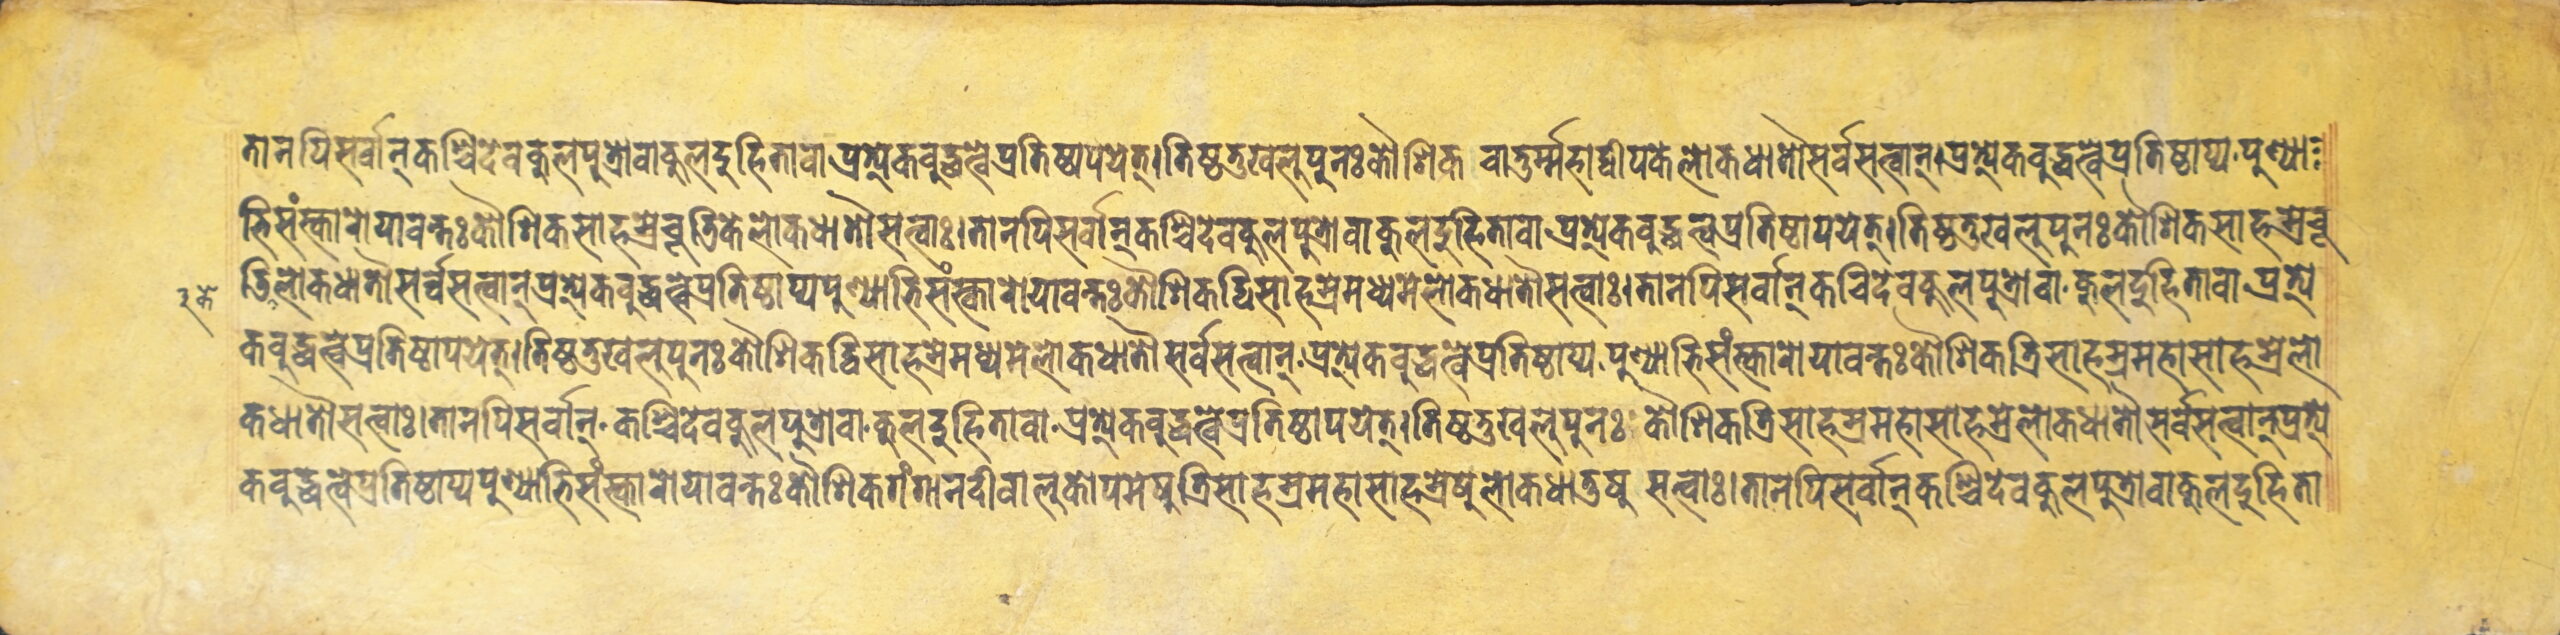 तानपिसर्वान्कश्चिदेवकुलपुत्रोवाकुलदुहितावा.प्रत्येकबुद्धत्वेप्रतिष्ठापयेत्।तिष्ठतुखलुपुनःकौशिक चातुर्म्महाद्वीपकेलोकधातौसर्वसत्वान्।प्रत्येकबुद्धत्वेप्रतिष्ठाप्य.पुण्या
भिसंस्कारोयावन्तःकौशिकसाहस्रेचूडिकेलोकधातौसत्वाः।तानपिसर्वान्कश्चिदेवकुलपुत्रोवाकुलदुहितावा.प्रत्येकबुद्धत्वप्रतिष्ठापयेत्।तिष्ठतुखलुपुनःकौशिकसाहस्रेचू
डिलोकधातौसर्व्वसत्वान्प्रत्येकबुद्धत्वेप्रतिष्ठाप्यपुण्याभिसंस्कारोयावन्तःकौशिकद्विसाहस्रेमध्यमेलोकधातौसत्वाः।तानपिसर्वान्कचिदेवकुलपुत्रोवा.कुलदुहितावा.प्रत्ये
३के
कबुद्धत्वेप्रतिष्ठापयेत्।तिष्ठतुखलुपुनःकौशिकद्विसाहस्रेमध्यमेलोकधातौसर्वसत्वान्.प्रत्येकबुद्धत्वेप्रतिष्ठाप्य.पुण्याभिसंस्कारोयावन्तःकौशिकत्रिसाहस्रमहासाहस्रेलो
कधातौसत्वाः।तानपिसर्वान्.कश्चिदेवकुलपुत्रोवा.कुलदुहितावा.प्रत्येकबुद्धत्वेप्रतिष्ठापयेत्।तिष्ठतुखलुपुनः कौशिकत्रिसाहस्रमहासाहस्रेलोकधातौसर्वसत्वान्प्रत्ये
कबुद्धत्वेप्रतिष्ठाप्यपुण्याभिसंस्कारोयावन्तःकौशिकगंगानदीवालुकोपमेषुत्रिसाहस्रमहासाहस्रेषुलोकधातुषु सत्वाः।तानपिसर्वान्कश्चिदेवकुलपुत्रोवाकुलदुहिता